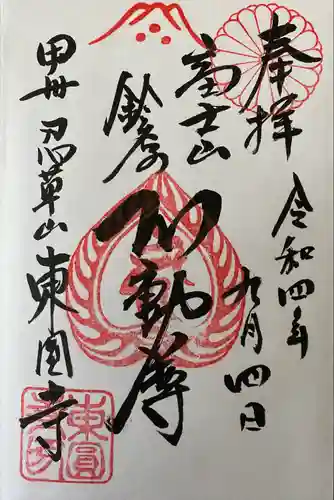 奉拝
令和四年
九月四日
富士山
鈴彦の
不動尊
甲州 忍草山 東圓寺
東圓
寺印